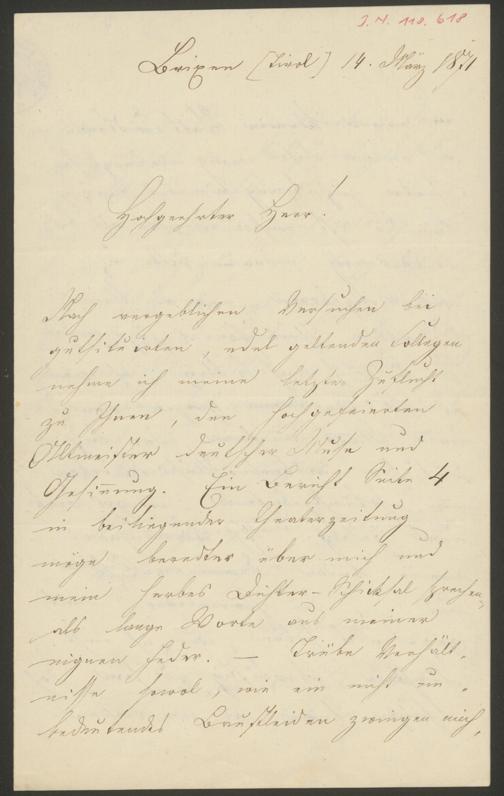 J. N. 110.618
Brixen [Tirol] 14. März 1871
Hochgeehrter Herr!
Nach vergeblichen Versuchen bei
gutsituirten, edel geltenden Collegen
nehme ich meine letzte Zuflucht
zu Ihnen, den hochgefeierten
Altmeister deutscher Muse und
Gesinnung. Ein Bericht Seite 4
in beiliegender Theaterzeitung
möge beredter über mich und
mein herbes Dichter-Schicksal sprechen,
als lange Worte aus meiner
eignen Feder. — Trübe Verhält-
nisse sowol, wie ein nicht un-
bedeutendes Brustleiden zwingen mich,